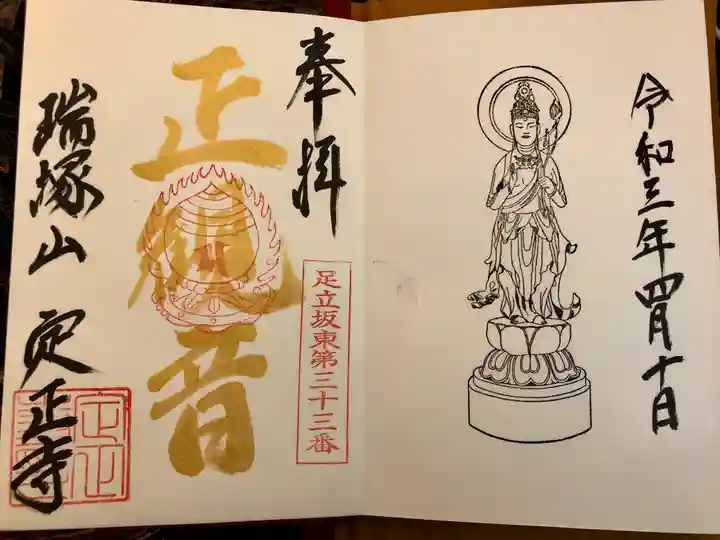 令和三年四月十日
奉拝
足立坂東第三十三番
正観音
瑞塚山 定正寺